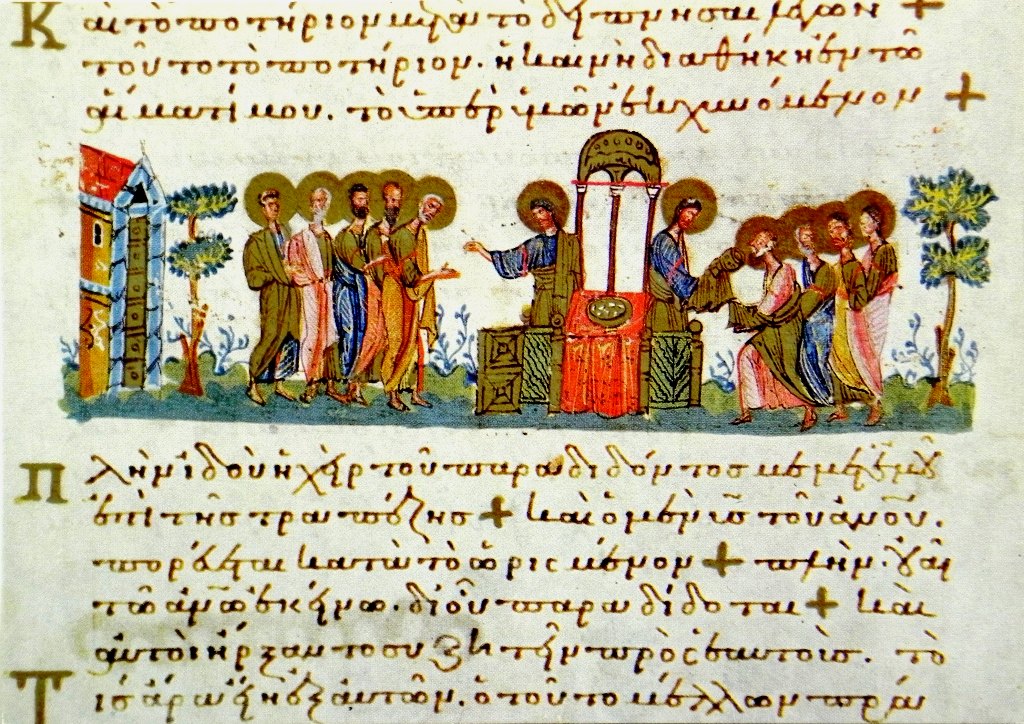 Καὶ τὸ ποτήριον μετὰ τὸ δειπνῆσαι λέγων +
τοῦτο τὸ ποτήριον. ἡ καινὴ διαθήκη ἐν τῶ
αἵματί μου. τὸ ὑπὲρ ὑμῶν ἐκχυνόμενον +
Πλὴν ἰδοὺ ἡ χεὶρ τοῦ παραδιδόντος με μετ' ἐμοῦ
ἐπὶ τῆς τραπέζης + καὶ ὁ μὲν υἱς τοῦ ἀνου.
πορεύεται κατὰ τὸ ὡρισμένον + πλὴν οὐαὶ
τῶ ἀνω ἐκείνω. δι' οὗ παραδίδοται + καὶ
αὐτοὶ ἤρξαντο συζητεῖν πρὸς ἑαυτοὺς. τὸ
Τίς ἄρα εἴη ἐξ αὐτῶν. ὁ τοῦτο μέλλων πρά